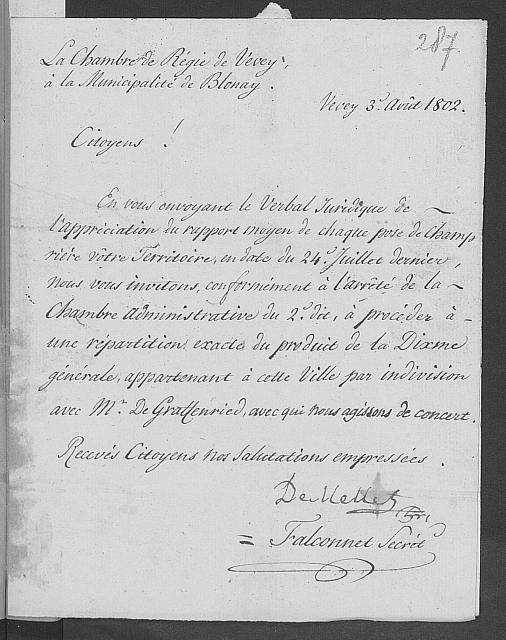 287.
La Chambre de Régie de Vevey,
à la Municipalité de Blonay.
Vevey 3.e Août 1802.
Citoyens !
En vous envoyant le Verbal Juridique de
l'appréciation du rapport moyen de chaque pose de Champ
rière vôtre Territoire, en date du 24.e Juillet dernier,
nous vous invitons, conformément à l'arrêté de la
Chambre administrative du 2.e dit, à procéder à
une répartition exacte du produit de la Dixme
générale, appartenant à cette Ville par indivision
avec M.r De Graffenried, avec qui nous agissons de concert.
Recevés Citoyens nos salutations empressées.
De Mellet
= Falconnet Secrét.